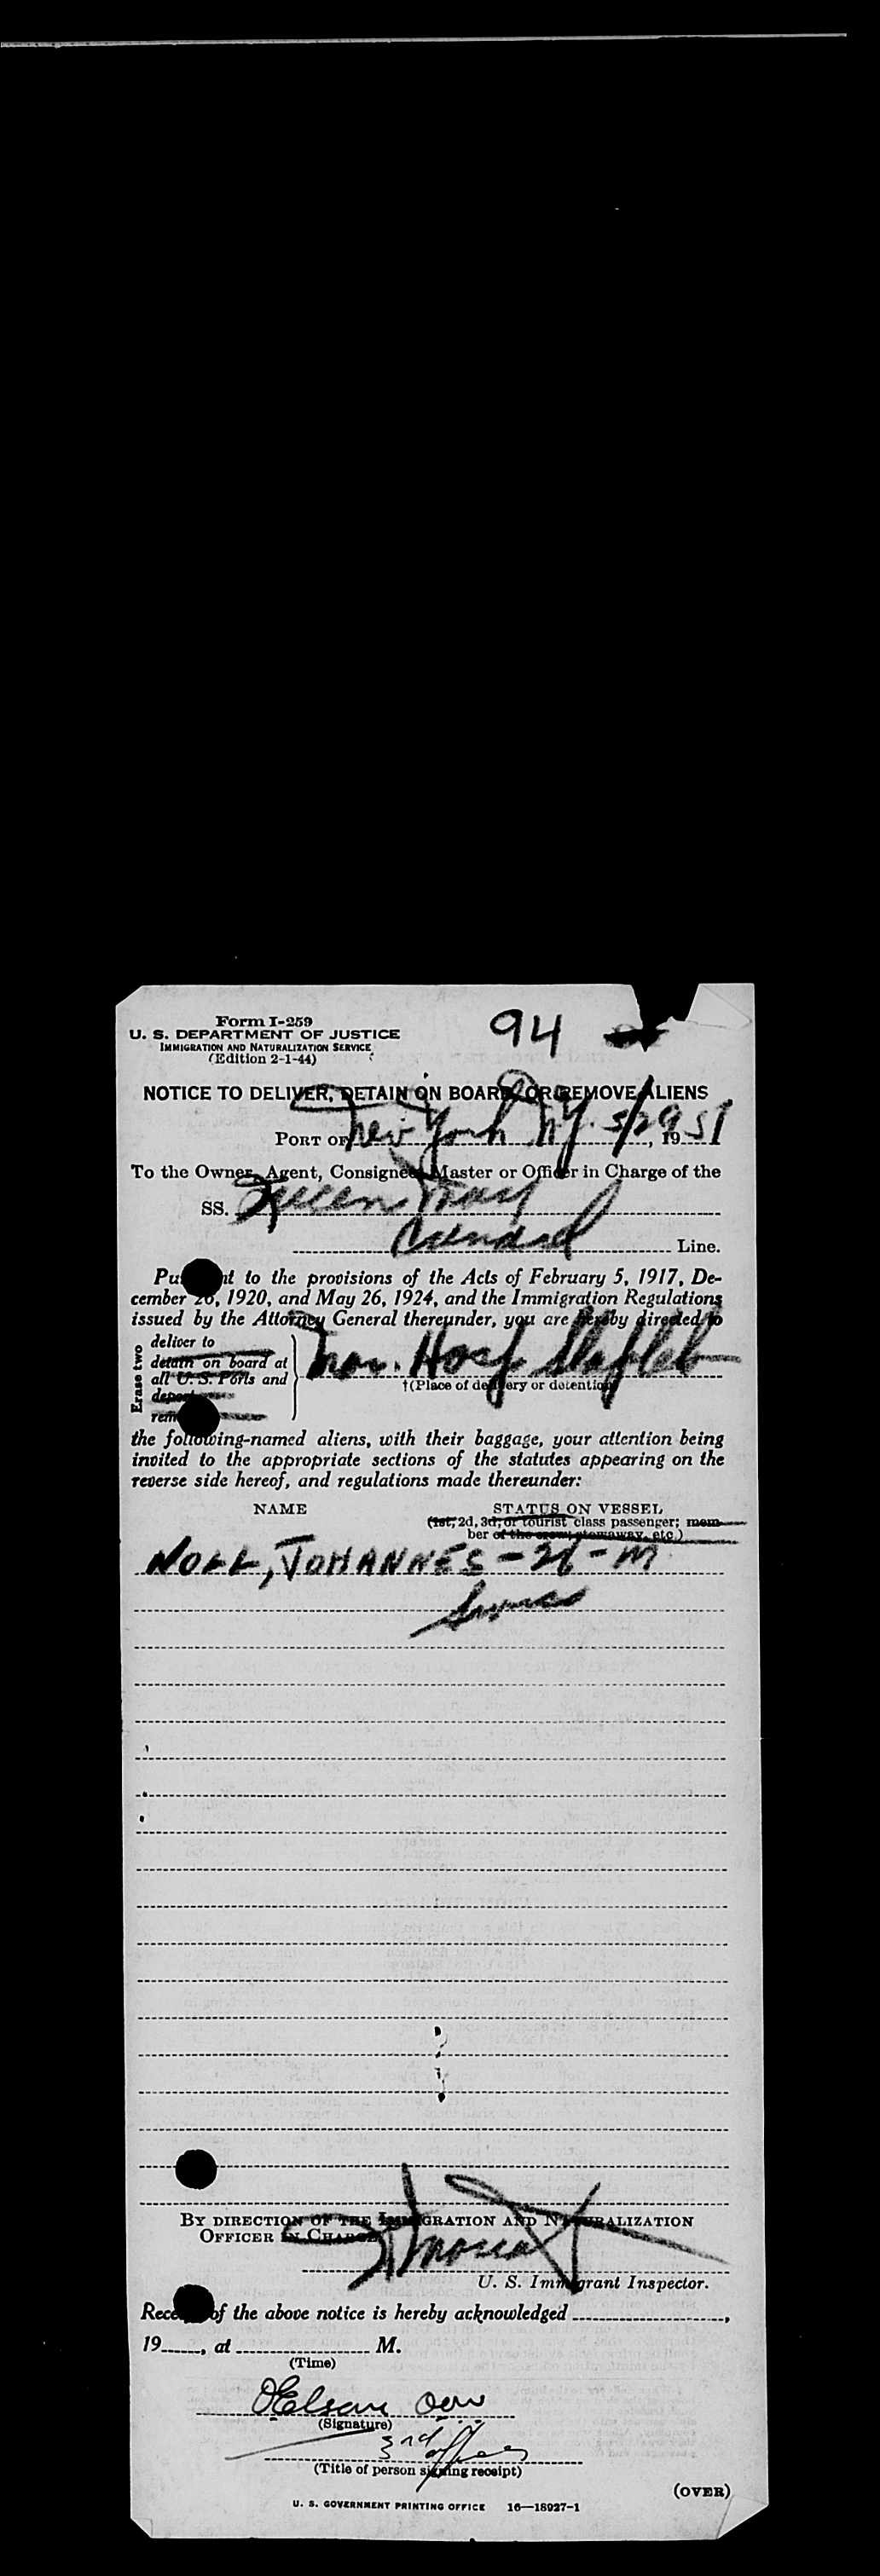 Form I-259
94
U. S. DEPARTMENT OF JUSTICE
IMMIGRATION AND NATURALIZATION SERVICE
(Edition 2-1-44)
NOTICE TO DELIVER, DETAIN ON BOARD, OR REMOVE ALIENS
PORT OF New York NY. 5/29, 1951
To the Owner, Agent, Consignee, Master or Officer in Charge of the
SS. Queen Mary
Cunard Line.
Pursuant to the provisions of the Acts of February 5, 1917, De-
cember 26, 1920, and May 26, 1924, and the Immigration Regulations
issued by the Attorney General thereunder, you are hereby directed to
Erase two
deliver to
detain on board at
all U. S. Ports and
deport
remove
Hosp.
†(Place of delivery or detention)
the following-named aliens, with their baggage, your attention being
invited to the appropriate sections of the statutes appearing on the
reverse side hereof, and regulations made thereunder:
NAME STATUS ON VESSEL
(1st, 2d, 3d, or tourist class passenger; mem-
ber of the crew, stowaway, etc.)
NOLL, JOHANNES - 26 - M
BY DIRECTION OF THE IMMIGRATION AND NATURALIZATION
OFFICER IN CHARGE
U. S. Immigrant Inspector.
Receipt of the above notice is hereby acknowledged ,
19 , at M.
(Time)
(Signature)
3rd officer
(Title of person signing receipt)
(OVER)
U. S. GOVERNMENT PRINTING OFFICE 16—18927-1